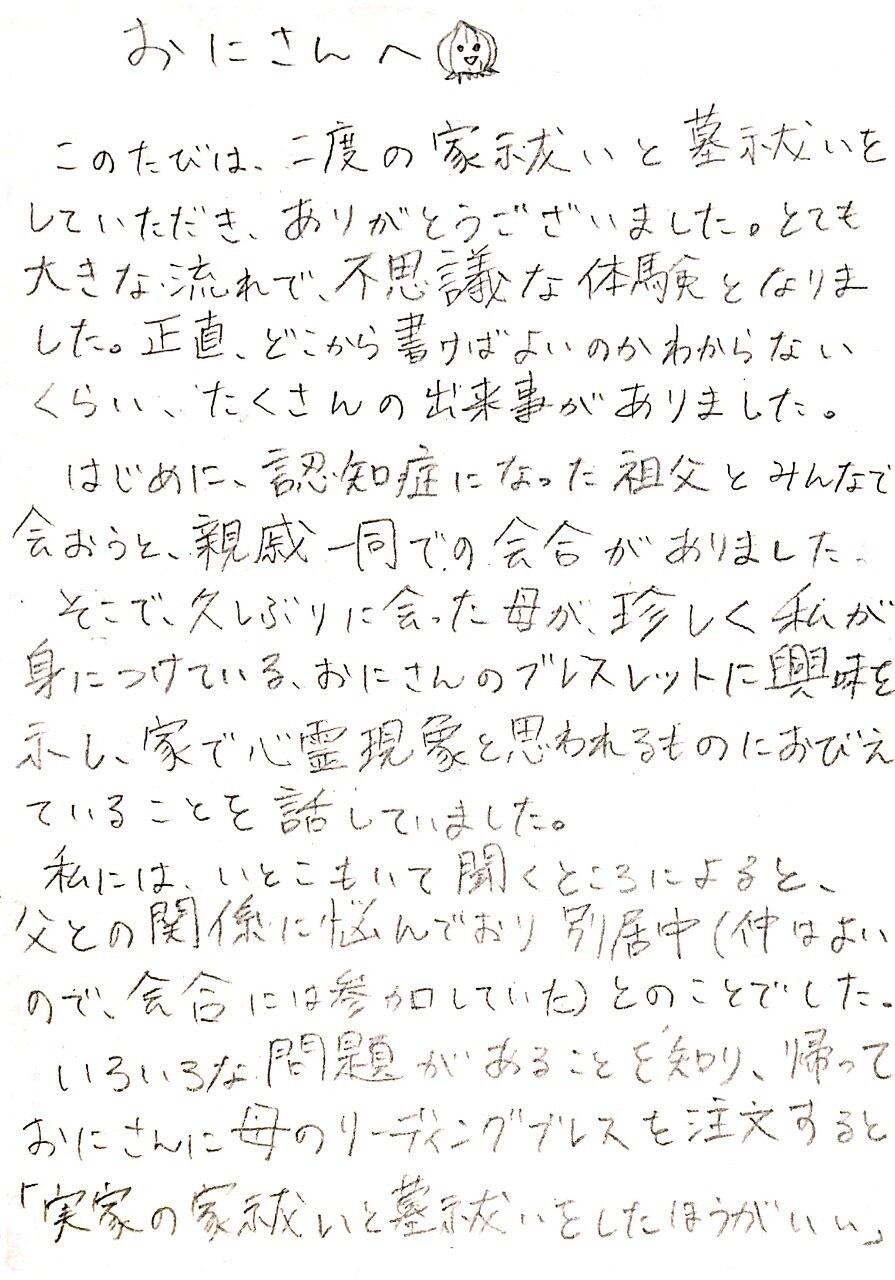 おにさんへ
このたびは、二度の家祓いと墓祓いを
していただき、ありがとうございました。とても
大きな流れで、不思議な体験となりま
した。正直、どこから書けばよいのかわからない
くらい、たくさんの出来事がありました。
はじめに、認知症になった祖父とみんなで
会おうと、親戚一同での会合がありました。
そこで、久しぶりに会った母が、珍しく私が
身につけている、おにさんのブレスレットに興味を
示し、家で心霊現象と思われるものにおびえ
ていることを話していました。
私には、いとこもいて聞くところによると、
父との関係に悩んでおり別居中(仲はよい
ので、会合には参加していた)とのことでした。
いろいろな問題があることを知り、帰って
おにさんに母のリーディングブレスを注文すると
「実家の家祓いと墓祓いをしたほうがいい」